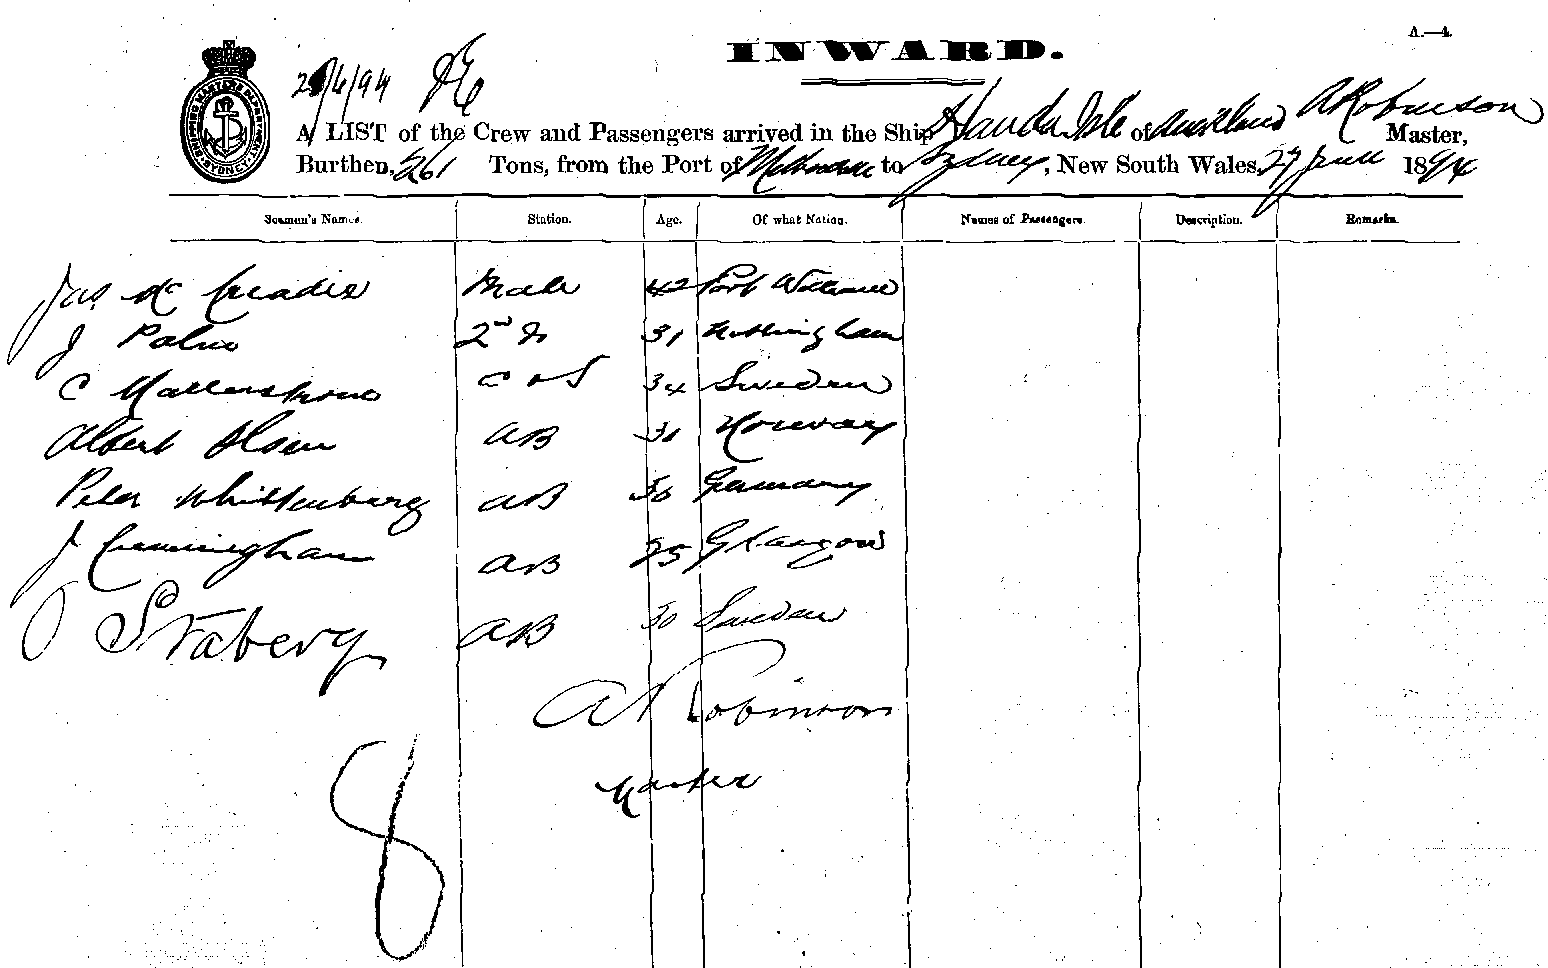 INWARD.
A.—4.
A LIST of the Crew and Passengers arrived in the Ship Handa Isle of Auckland A Robinson Master,
Burthen, 261 Tons, from the Port of Melbourne to Sydney, New South Wales, 27 June 1894
Seamen's Names. Station. Age. Of what Nation. Names of Passengers. Description. Remarks.
Jas Mc Creadie Mate 42 Port William
J 2nd Do 31 Nottingham
C C & S 34 Sweden
Albert Olsen AB 31 Norway
Peter Whittenburg AB 30 Germany
J Cunningham AB 25 Glasgow
Staberg AB 30 Sweden
A Robinson
Master
8